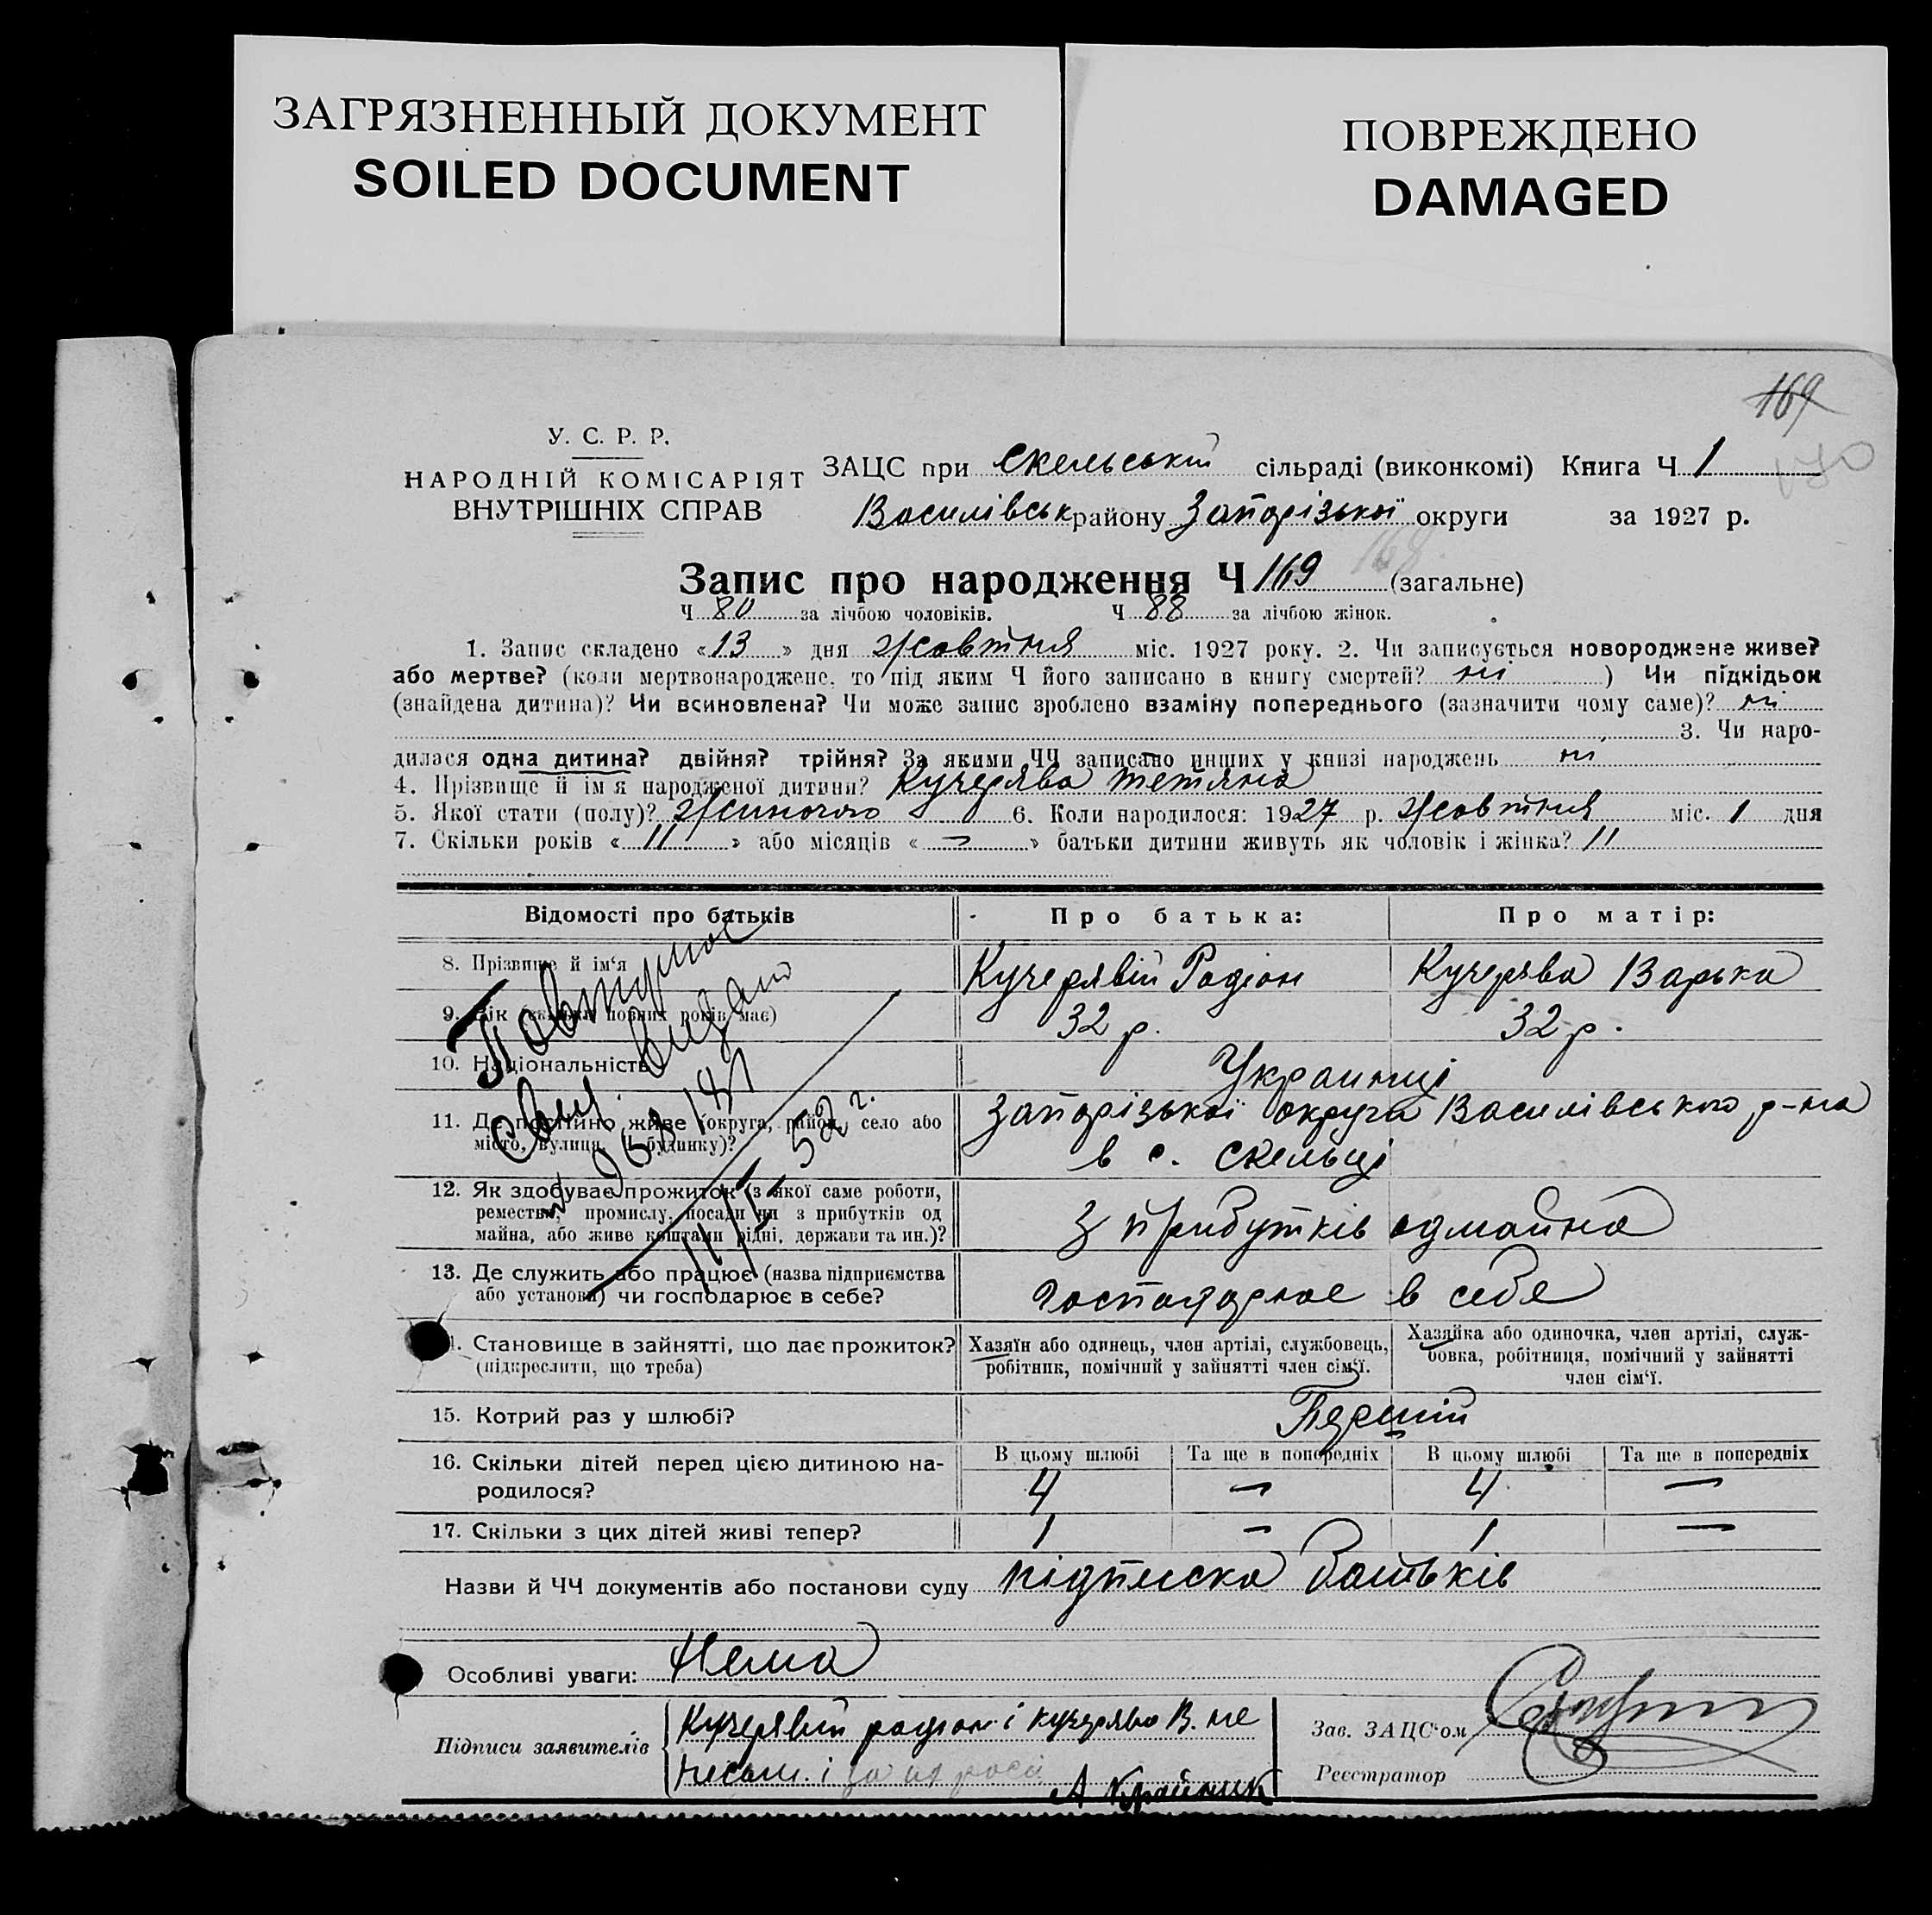 ЗАГРЯЗНЕННЫЙ ДОКУМЕНТ
SOILED DOCUMENT
ПОВРЕЖДЕНО
DAMAGED
169
У. С. Р. Р.
НАРОДНІЙ КОМІСАРІЯТ
ВНУТРІШНІХ СПРАВ
ЗАЦС при Скельській сільраді (виконкомі) Книга Ч 1
Василівськ району Запорізької округи за 1927 р.
Запис про народження Ч 169 168 (загальне)
Ч 80 за лічбою чоловіків. Ч 88 за лічбою жінок.
1. Запис складено «13» дня Жовтня міс. 1927 року. 2. Чи записується новороджене живе?
або мертве? (коли мертвонароджене, то під яким Ч його записано в книгу смертей? ні ) Чи підкідьок
(знайдена дитина)? Чи всиновлена? Чи може запис зроблено взаміну попереднього (зазначити чому саме)? ні
3. Чи наро-
дилася одна дитина? двійня? трійня? За якими ЧЧ записано инших у книзі народжень ні
4. Прізвище й ім'я народженої дитини? Кучерява Тетяна
5. Якої стати (полу)? Жиночого 6. Коли народилося: 1927 р. Жовтня міс. 1 дня
7. Скільки років «11» або місяців «—» батьки дитини живуть як чоловік і жінка? 11
Відомості про батьків Про батька: Про матір:
8. Прізвище й ім'я Кучерявій Родіон Кучерява Варька
9. Вік (скільки повних років має) 32 р. 32 р.
10. Національність Украинці
11. Де постійно живе (округа, район, село або
місто, вулиця, Ч будинку)?
Запорізької округа Василівського р-на
в с. Скельці
12. Як здобуває прожиток (з якої саме роботи,
ремества, промислу, посади чи з прибутків од
майна, або живе коштами рідні, держави та ин.)?
З прибутків одмайна
13. Де служить або працює (назва підприємства
або установи) чи господарює в себе?
господарює в себе
Повторное
Свид. выдано
11/I 52 г.
14. Становище в зайнятті, що дає прожиток?
(підкреслити, що треба)
Хазяїн або одинець, член артілі, службовець,
робітник, помічний у зайнятті член сім'ї.
Хазяйка або одиночка, член артілі, служ-
бовка, робітниця, помічний у зайнятті
член сім'ї.
15. Котрий раз у шлюбі? Перший
16. Скільки дітей перед цією дитиною на-
родилося?
В цьому шлюбі Та ще в попередніх В цьому шлюбі Та ще в попередніх
4 — 4 —
17. Скільки з цих дітей живі тепер? 1 — 1 —
Назви й ЧЧ документів або постанови суду підписка батьків
Особливі уваги: Нема
Підписи заявителів Кучерявий родіон і кучерява В. не
писм. і за их роси
А Крайник
Зав. ЗАЦС'ом
Реєстратор